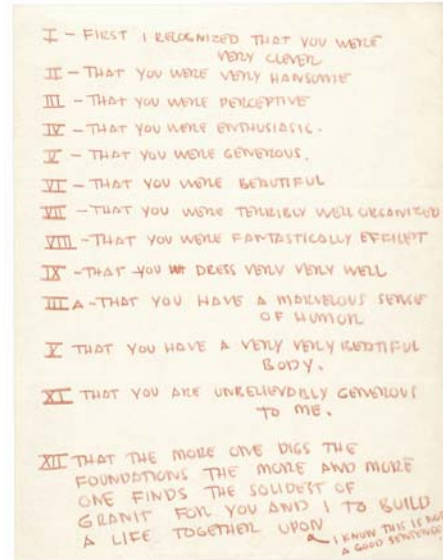 I - FIRST I RECOGNIZED THAT YOU WERE
VERY CLEVER
II - THAT YOU WERE VERY HANSOME
III - THAT YOU WERE PERCEPTIVE
IV - THAT YOU WERE ENTHUSIASIC.
V - THAT YOU WERE GENEROUS.
VI - THAT YOU WERE BEAUTIFUL
VII - THAT YOU WERE TERRIBLY WELL ORGANIZED
VIII - THAT YOU WERE FANTASTICALLY EFFICIET
IX - THAT YOU DRESS VERY VERY WELL
IIIA - THAT YOU HAVE A MARVELOUS SENSE
OF HUMOR
X THAT YOU HAVE A VERY VERY BEATIFUL
BODY.
XI THAT YOU ARE UNBELIEVABLY GENEROUS
TO ME.
XII THAT THE MORE ONE DIGS THE
FOUNDATIONS THE MORE AND MORE
ONE FINDS THE SOLIDEST OF
GRANIT FOR YOU AND I TO BUILD
A LIFE TOGETHER UPON
I KNOW THIS IS NOT
A GOOD SENTENCE